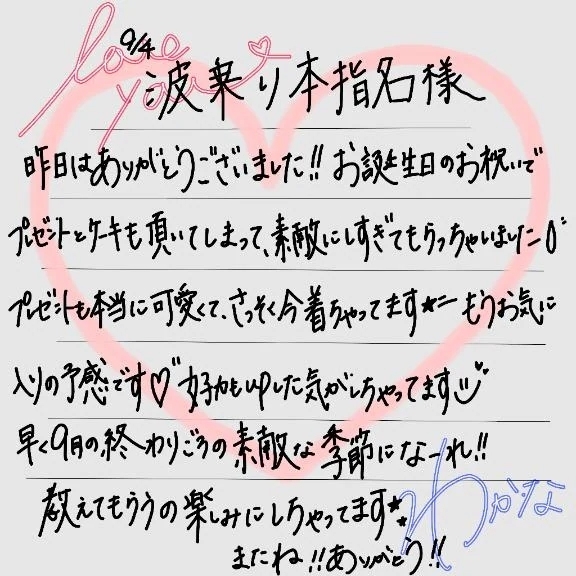 love you♡
9/4
波乗り本指名様
昨日はありがとうございました!! お誕生日のお祝いで
プレゼントとケーキも頂いてしまって、素敵にしすぎてもらっちゃいました
プレゼントも本当に可愛くて、さっそく今着ちゃってます もうお気に
入りの予感です♡ 女子力もupした気がしちゃってます
早く9月の終わりごろの素敵な季節になーれ!!
教えてもらうの楽しみにしちゃってます
またね!!ありがとう!!
わかな